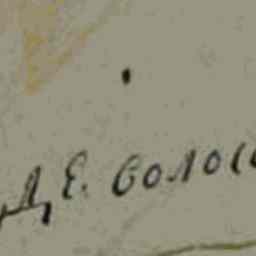 Д Е. Солос